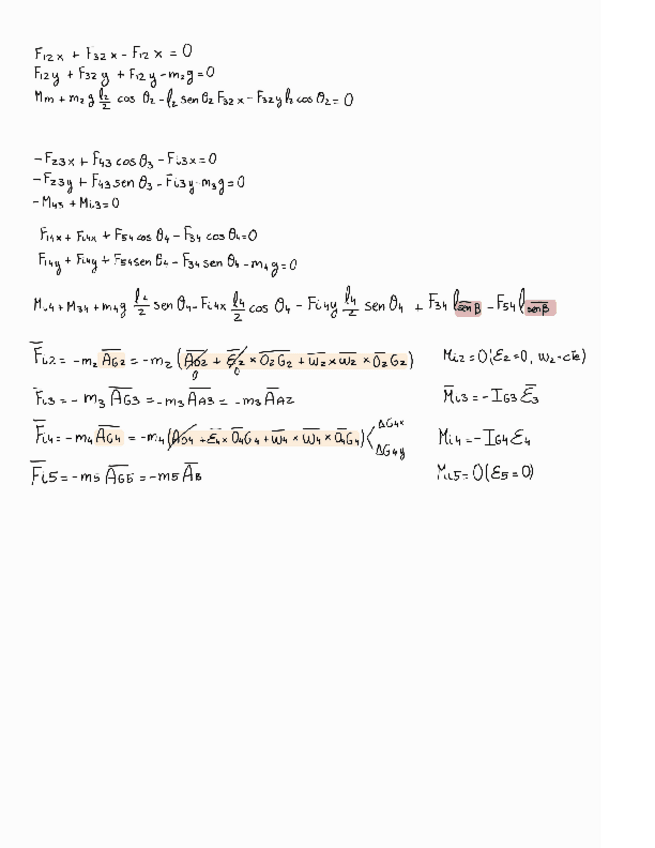 F12x + F32x - F12x = 0
F12y + F32y + F12y - m2g = 0
Mm + m2 g l2/2 cos θ2 - l2 sen θ2 F32x - F32y l2 cos θ2 = 0
-F23x + F43 cos θ3 - Fi3x = 0
-F23y + F43 sen θ3 - Fi3y - m3g = 0
-M43 + Mi3 = 0
F14x + Fi4x + F54 cos θ4 - F34 cos θ4 = 0
F14y + Fi4y + F54 sen θ4 - F34 sen θ4 - m4g = 0
Mi4 + M34 + m4g l4/2 sen θ4 - Fi4x l4/2 cos θ4 - Fi4y l4/2 sen θ4 + F34 l/sen β - F54 l/sen β
F̅i2 = -m2 A̅G2 = -m2 (A̅O2 + ε̅2 × O̅2G2 + w̅2 × w̅2 × O̅2G2) Mi2 = 0 (ε2=0, w2=cte)
0 0
F̅i3 = -m3 A̅G3 = -m3 A̅A3 = -m3 A̅A2 M̅i3 = -IG3 ε̅3
F̅i4 = -m4 A̅G4 = -m4 (A̅O4 + ε̅4 × O̅4G4 + w̅4 × w̅4 × O̅4G4) < AG4x AG4y Mi4 = -IG4 ε4
F̅i5 = -m5 A̅G5 = -m5 A̅B Mi5 = 0 (ε5=0)